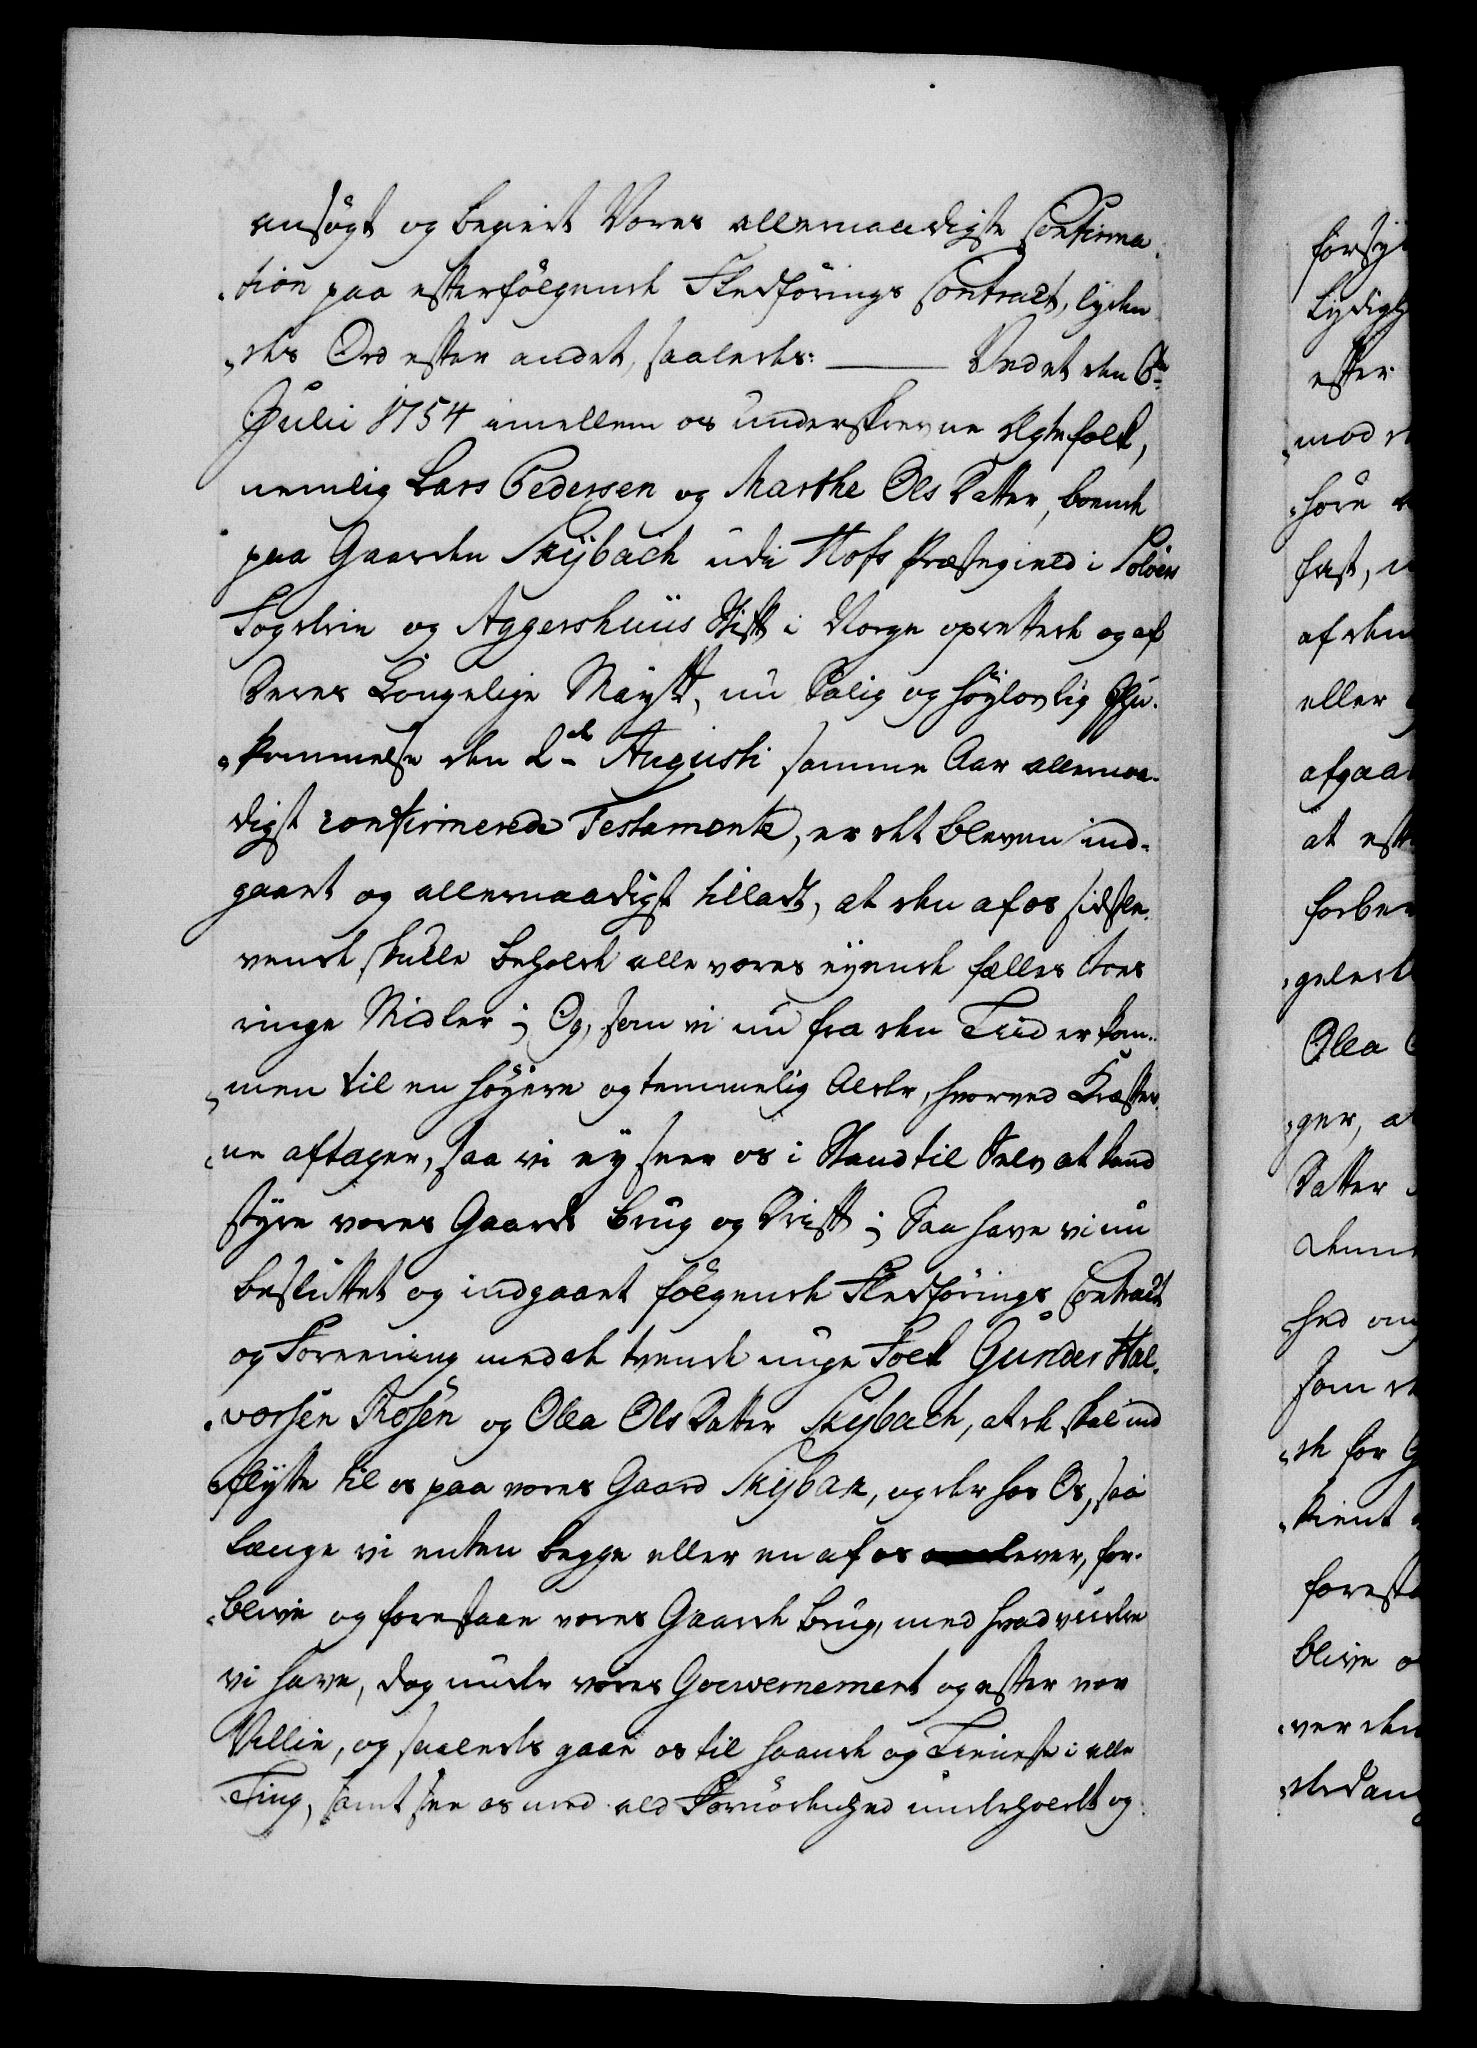 ansøgt og begiert Vores allernaadigste Confirma-
tion paa efterfølgende Fledførings Contract, lyden-
des Ord efter andet, saaledes: Ved et den 6te
Julii 1754 imellem os underskrevne Ægtefolk,
nemlig Lars Pedersen og Marthe Ols Datter, boende
paa Gaarden Skÿbach udi Hofs Præstegield i Soløers
Fogderie og Aggershuus Stift i Norge oprettede og af
Deres Kongelige Maÿtt, nu Salig og høylovlig Ihu-
kommelse den 2de Augusti samme Aar allernaa-
digst confirmerede Testamente, er det bleven ind-
gaaet og allernaadigst tilladt, at den af os sidstle-
vende skulle beholde alle vores eyende fælles Boes
ringe Midler; Og, som vi nu fra den Tiid er kom-
men til en høyere og temmelig Alder, hvorved Kræfter-
ne aftager, saa vi ey seer os i Stand til Selv at kand
styre vores Gaards Brug og Drift; Saa have vi nu
besluttet og indgaaet følgende Fledførings Contract
og Foreening med de tvende unge Folk Gunder Hal-
vorsen Rosen og Olea Ols Datter Skÿbach, at de skal ind
flÿtte til os paa vores Gaard Skÿbak, og der hos Os, saa
længe vi enten begge eller en af os lever, for-
blive og forestaae vores Gaards Brug, med hvad videre
vi have, dog under vores Gouvernement og efter vor
Villie, og saaledes gaae os til Haande og Tieneste i alle
Ting, samt see os med ald Fornødenhed underholdt og
forsy
Lydigh
efter
mod
høre
fast,
af den
eller
afgaa
at eft
forben
gelede
Olea
ger, a
Datter
denn
hed om
som
de for G
kient
foresta
blive
ver den